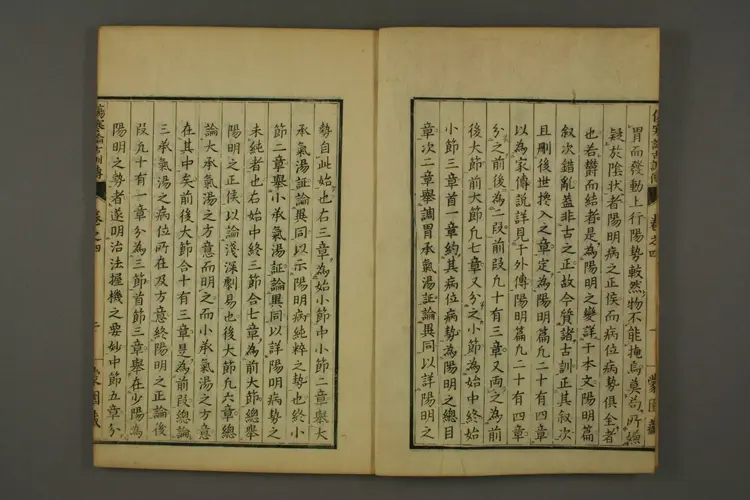 胃而發動上行陽勢較然物不能掩焉莫苟所嫌
疑於陰狀者陽明病之正侯而病位病勢俱全者
也若欝而結者是為陽明之變詳于本文陽明篇
叙次錯亂蓋非古之正故今質諸古訓正其叙次
且刪後世攙入之章定為陽明篇凡二十有四章
以為家傳說詳見于外傳陽明篇凡二十有四章
分之前後為二段前段九十有三章又兩之為前
後大節前大節凡七章又分之小節為始中終始
小節三章首一章約其病位病勢為陽明之總目
章次二章舉調胃承氣湯証論異同以詳陽明之
勢自此始也右三章為始小節中小節二章舉大
承氣湯証論異同以示陽明病純粹之勢也終小
節二章舉小承氣湯証論異同以詳陽明病勢之
未純者也右始中終三節合七章為前大節總舉
陽明之正侯以論淺深劇易也後大節凡六章總
論大承氣湯之方意而明之而小承氣湯之方意
在其中矣前後大節合十有三章是為前段總論
三承氣湯之病位所在及方意終陽明之正論後
段九十有一章分為三節首節三章舉在少陽為
陽明之勢者遂明治法握機之要妙中節五章分
傷寒論古訓傳
卷之四